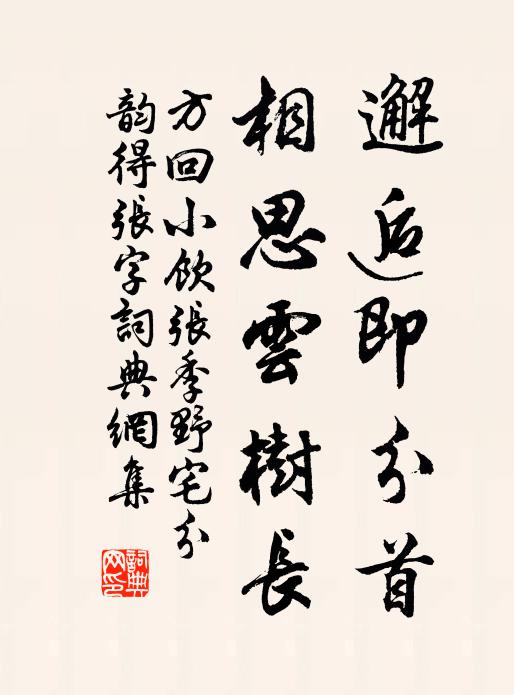 邂逅即分首
相思雲樹長
方回小飲張季野宅分
韵得張字詞典網集
詞典
网印